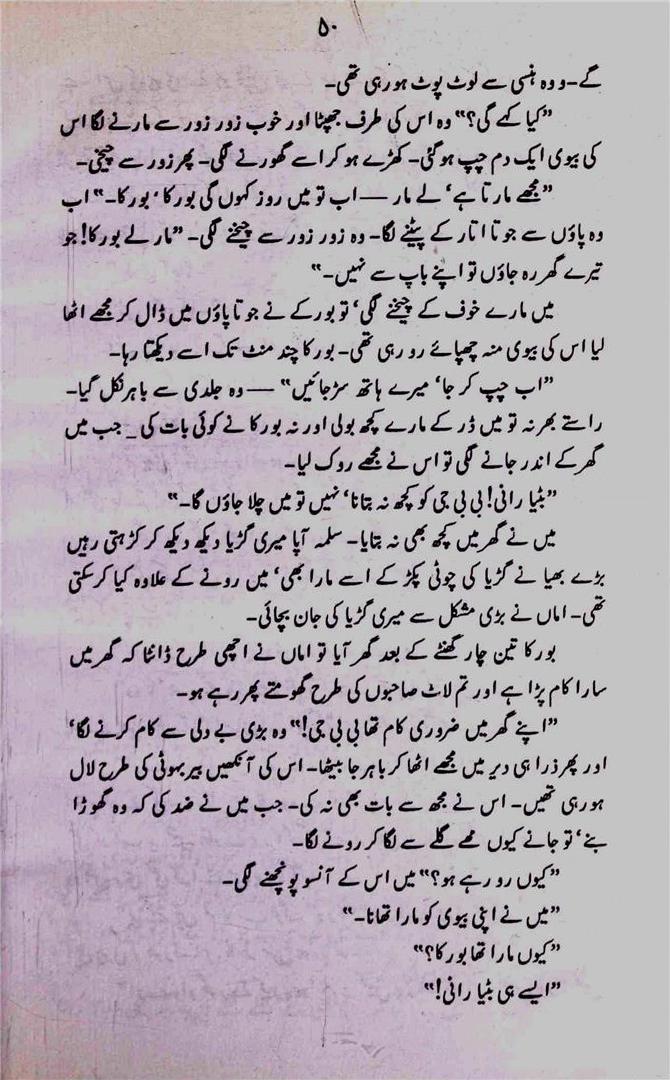 ۵۰
گے۔ و وہ ہنسی سے لوٹ پوٹ ہو رہی تھی۔
”کیا کہے گی؟“ وہ اس کی طرف جھپٹا اور خوب زور زور سے مارنے لگا اس
کی بیوی ایک دم چپ ہو گئی۔ کھڑے ہو کر اسے گھورنے لگی۔ پھر زور سے چیخی۔
”مجھے مارتا ہے‘ لے مار — اب تو میں روز کہوں گی بورکا‘ بورکا۔“ اب
وہ پاؤں سے جوتا اتار کے پیٹنے لگا۔ وہ زور زور سے چیخنے لگی۔ ”مار لے بورکا! جو
تیرے گھر رہ جاؤں تو اپنے باپ سے نہیں۔“
میں مارے خوف کے چیخنے لگی‘ تو بورکے نے جوتا پاؤں میں ڈال کر مجھے اٹھا
لیا اس کی بیوی منہ چھپائے رو رہی تھی۔ بورکا چند منٹ تک اسے دیکھتا رہا۔
”اب چپ کر جا‘ میرے ہاتھ سڑ جائیں“ — وہ جلدی سے باہر نکل گیا۔
راستے بھر نہ تو میں ڈر کے مارے کچھ بولی اور نہ بورکا نے کوئی بات کی ۔ جب میں
گھر کے اندر جانے لگی تو اس نے مجھے روک لیا۔
”بٹیا رانی! بی بی جی کو کچھ نہ بتانا‘ نہیں تو میں چلا جاؤں گا۔“
میں نے گھر میں کچھ بھی نہ بتایا۔ سلمہ آپا میری گڑیا دیکھ دیکھ کر کڑھتی رہیں
بڑے بھیا نے گڑیا کی چوٹی پکڑ کے اسے مارا بھی‘ میں رونے کے علاوہ کیا کر سکتی
تھی۔ اماں نے بڑی مشکل سے میری گڑیا کی جان بچائی۔
بورکا تین چار گھنٹے کے بعد گھر آیا تو اماں نے اچھی طرح ڈانٹا کہ گھر میں
سارا کام پڑا ہے اور تم لاٹ صاحبوں کی طرح گھومتے پھر رہے ہو۔
”اپنے گھر میں ضروری کام تھا بی بی جی!“ وہ بڑی بے دلی سے کام کرنے لگا‘
اور پھر ذرا ہی دیر میں مجھے اٹھا کر باہر جا بیٹھا۔ اس کی آنکھیں بیر بہوٹی کی طرح لال
ہو رہی تھیں۔ اس نے مجھ سے بات بھی نہ کی۔ جب میں نے ضد کی کہ وہ گھوڑا
بنے‘ تو جانے کیوں مجھے گلے سے لگا کر رونے لگا۔
”کیوں رو رہے ہو؟“ میں اس کے آنسو پونچھنے لگی۔
”میں نے اپنی بیوی کو مارا تھا نا۔“
”کیوں مارا تھا بورکا؟“
”ایسے ہی بٹیا رانی!“